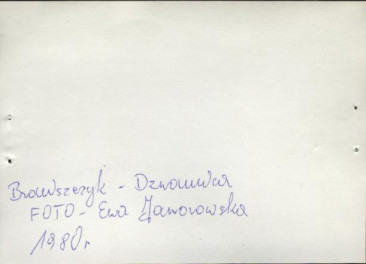 Browszczyk - Dzwonnica
FOTO - Ewa Jaworowska
1980r